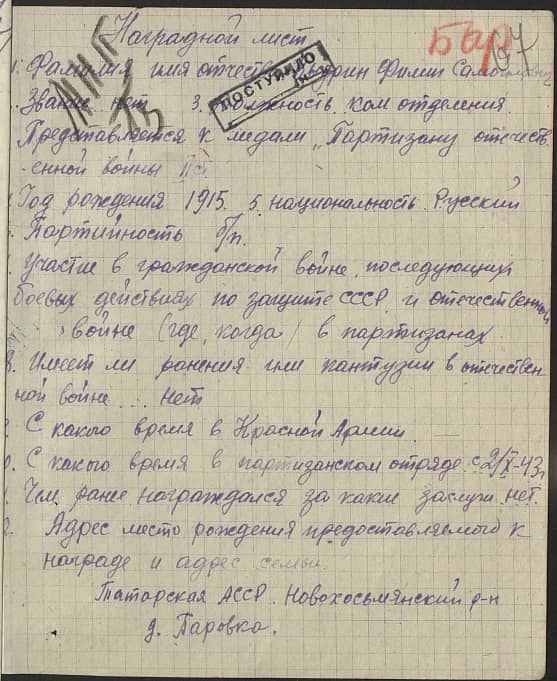 Бар
67
Наградной лист
1. Фамилия имя отчество Филип
ПОСТУПИЛО
2. Звание нет 3. Должность ком отделения.
Представляется к медали „Партизану отечеств-
-енной войны
Год рождения 1915. 5. национальность. Русский
Партийность б/п.
Участие в гражданской войне, последующих
боевых действиях по защите СССР, и отечественной
войне (где, когда) в партизанах
8. Имеет ли ранения или кантузии в отечествен-
ной войне... Нет
С какого время в Красной Армии
С какого время в партизанском отряде с 2/IX-43г
Чем ранее награждался за какие заслуги нет.
Адрес место рождения предоставляемого к
награде и адрес семьи.
Татарская АССР. Новохосьмянский р-н
д. Паровка.